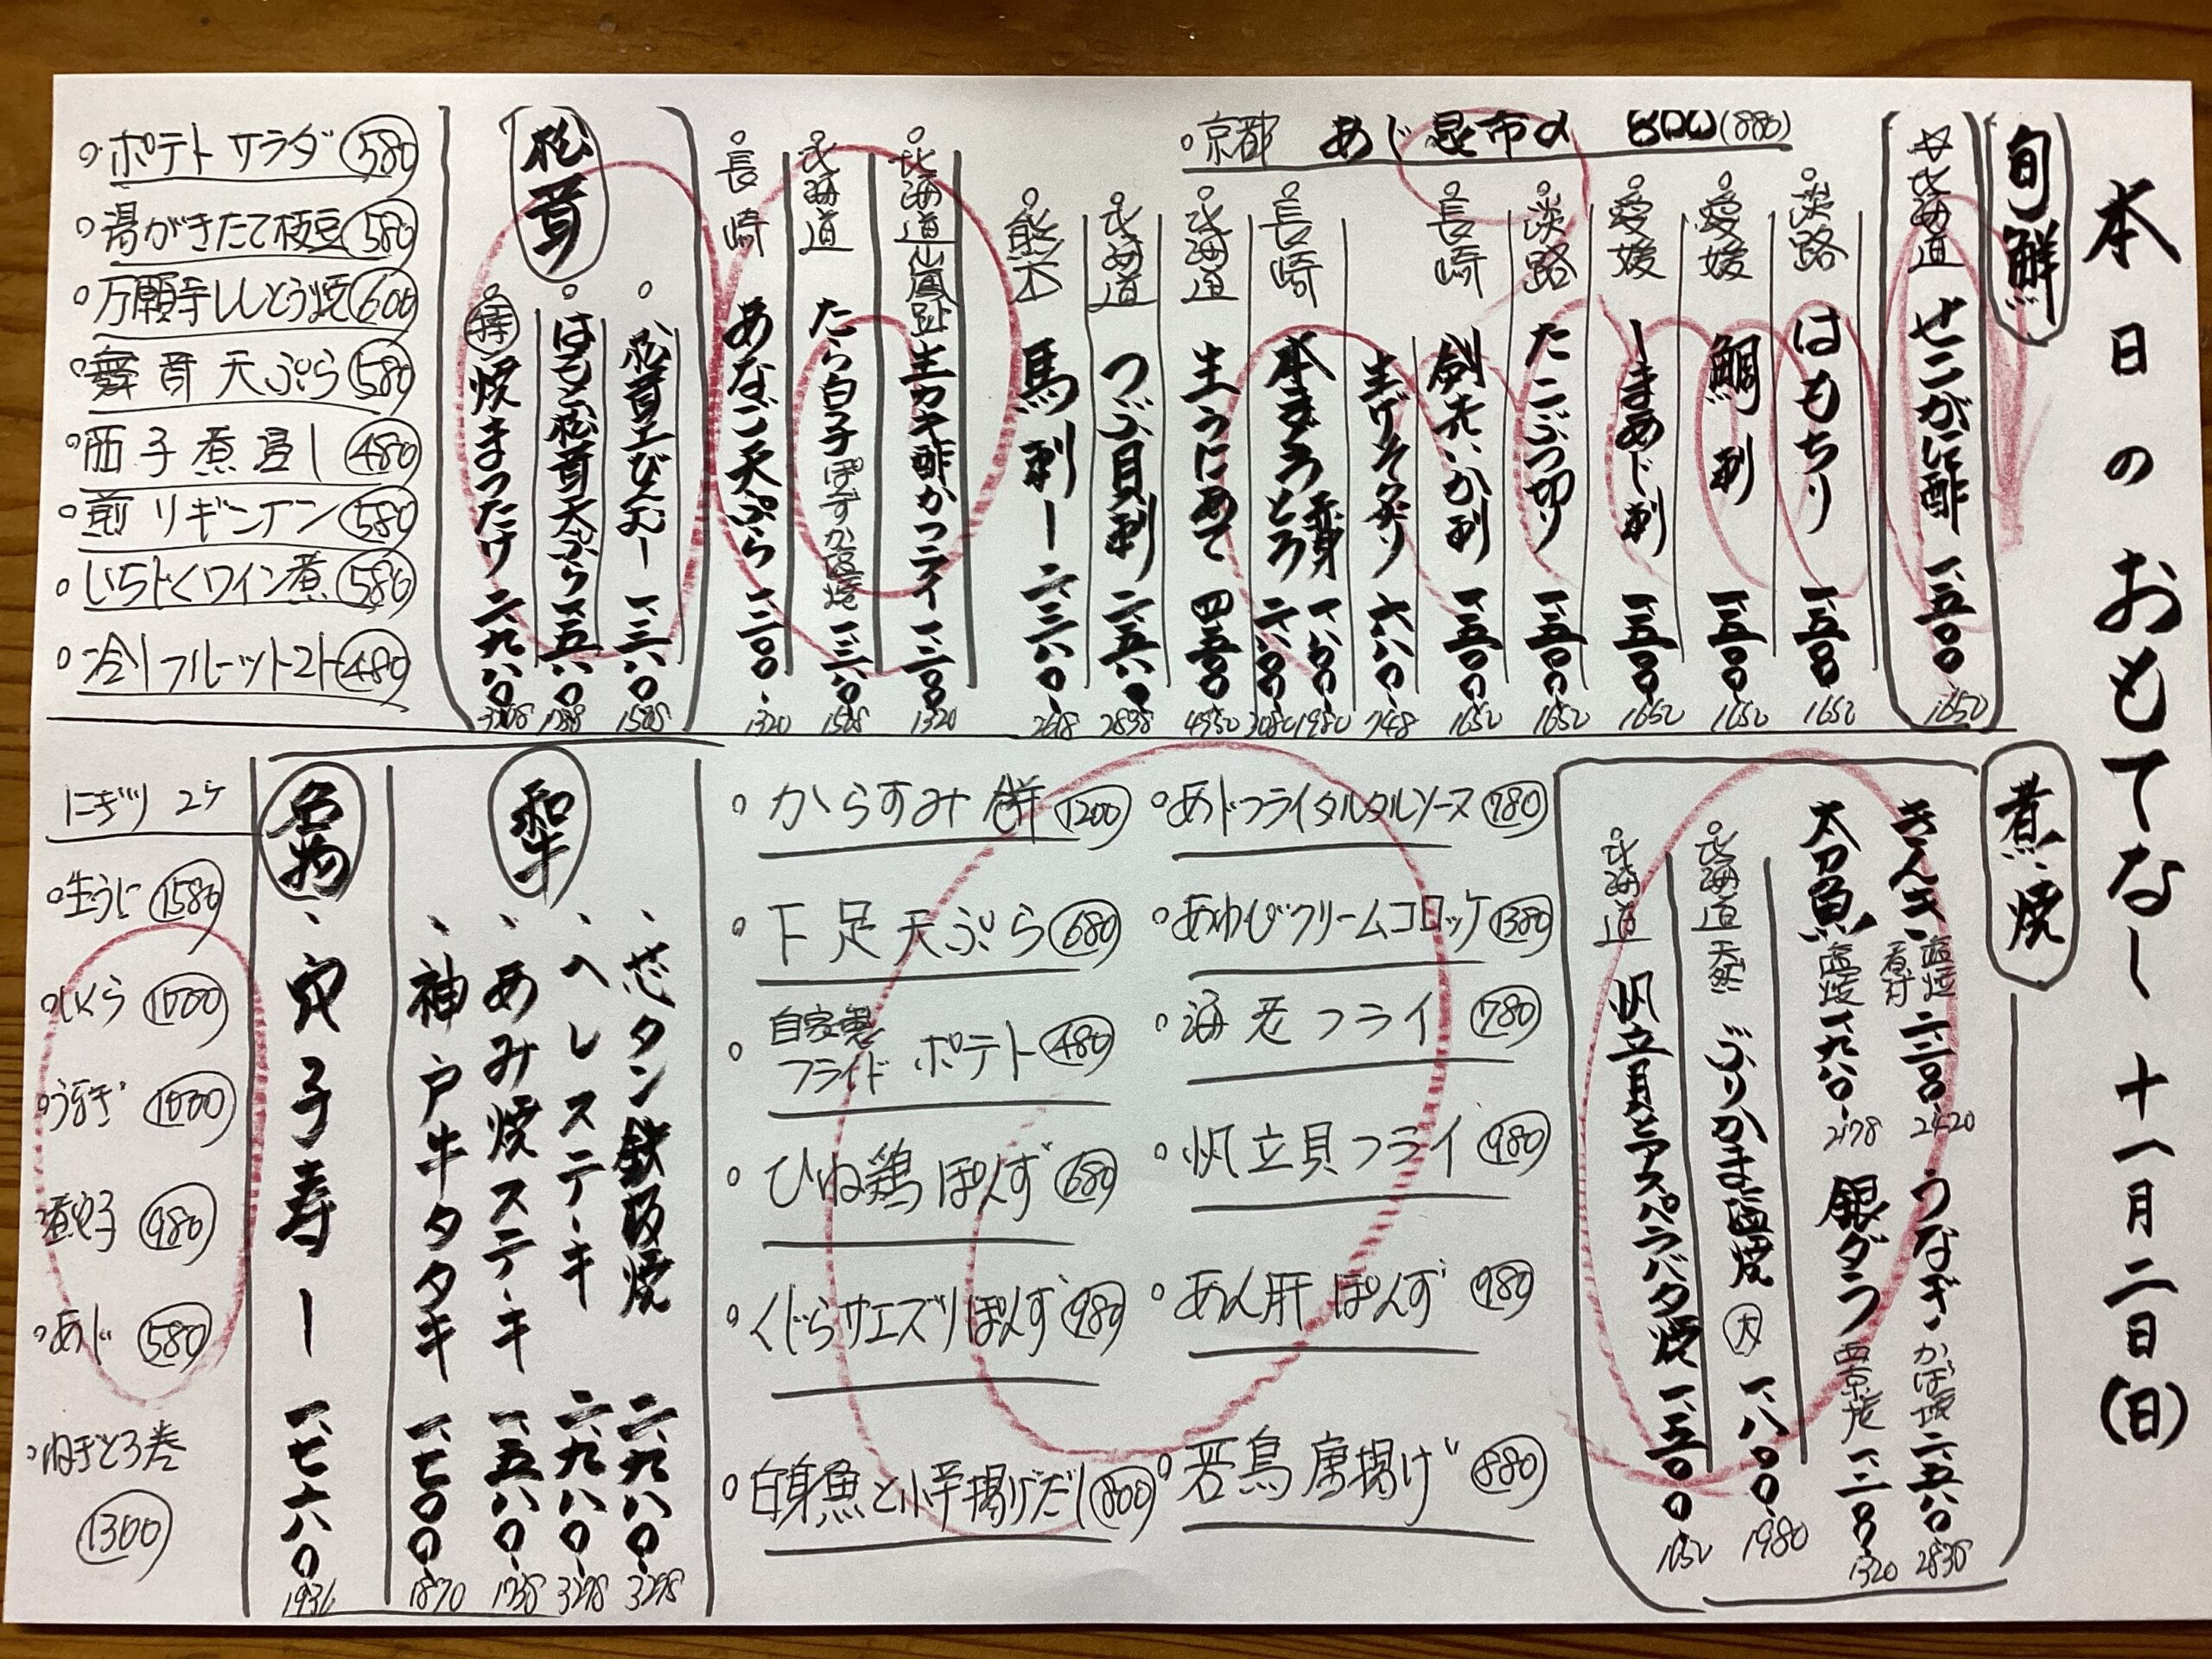 本日のおもてなし 十一月二日(日)
旬鮮
北海道 せこがに酢 一、五〇〇 1650
京都 あじ昆布〆 800(880)
淡路 はもちり 一、五〇〇 1650
愛媛 鯛刺 一、五〇〇 1650
愛媛 しまあじ刺 一、五〇〇 1650
淡路 たこぶつ切り 一、五〇〇 1650
長崎 剣先いか刺 一、五〇〇 1650
生げそ炙り 六八〇 748
長崎 本まぐろ 赤身 一、八〇〇 1980
とろ 二、八〇〇 3080
北海道 生うにあて 四、五〇〇 4950
北海道 つぶ貝刺 二、五八〇 2838
熊本 馬刺し 二、三八〇 2618
北海道 生カキ酢かフライ 一、二〇〇 1320
北海道 たら白子 ぽんずか塩焼 一、三八〇 1518
長崎 あなご天ぷら 一、二〇〇 1320
松茸
松茸土びんむし 一、三八〇 1518
はもと松茸天ぷら 一、五八〇 1738
焼まつたけ 二、九八〇 3278
ポテトサラダ 580
湯がきたて枝豆 580
万願寺ししとう焼 600
舞茸天ぷら 580
茄子煮浸し 480
煎りギンナン 580
いちじくワイン煮 580
冷しフルーツトマト 480
煮・焼
きんき 塩焼 煮付 二、二〇〇 2420
うなぎ かば焼 二、五八〇 2838
太刀魚 塩焼 一、九八〇 2178
銀ダラ 西京焼 一、二〇〇 1320
北海道 天然 ぶりかま塩焼 大 一、八〇〇 1980
北海道 帆立貝とアスパラバタ焼 一、五〇〇 1650
あじフライタルタルソース 780
あわびクリームコロッケ 1380
海老フライ 780
帆立貝フライ 980
あん肝ぽんず 980
若鳥唐揚げ 880
からすみ餅 1200
下足天ぷら 680
自家製フライドポテト 480
ひね鶏ぽんず 680
くじらサエズリぽんず 980
白身魚と小芋揚げだし 800
和牛
芯タン鉄板焼 二、九八〇 3278
ヘレステーキ 二、九八〇 3278
あみ焼ステーキ 一、五八〇 1738
神戸牛タタキ 一、七〇〇 1870
名物
穴子寿し 一、七六〇 1936
にぎり 2ケ
生うに 1580
いくら 1000
うなぎ 1000
煮穴子 980
あじ 580
ねぎとろ巻 1300